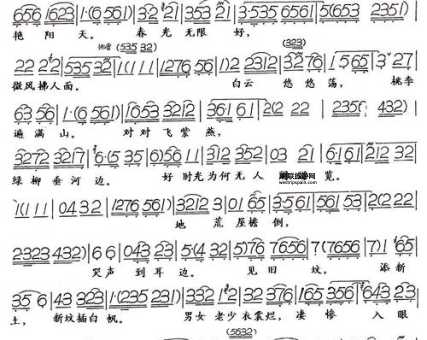 6̇56 1̇623 | 1·(6 561) | 32 21 | 353 21 | 3·535 6561 | 5(653 2351) |
艳阳天。 春光无限好,
(535 32) (323)
22 2 2 | 535 32 | 1(11 | 1276 56 | 1)2 2312 | 3276 | 1 5 65 | 3 27 |
微风拂人面。 白云悠悠荡, 桃李
63 56 | 1·(6 561) | 1653 3212 | 361 61 | 2(2 22 | 235( 432) |
遍满山。 对对飞紫燕,
3272 3217 | 6·(5 35 | 6)56 11 | 312 352 | 03 21 | 6161 | 212 32 |
绿柳垂河边。 好时光为何无人 览。
1(11 | 043 2 | 1276 561) | 3212 3 | 01 65 | 35 61 | 561 53 | 2(2 22 |
地荒屋檐倒,
2323 432) | 66 | 043 23 | 5(4 32 | 5)76 7656 | 7(7656 | 7)1 65 |
哭声到耳边。 见旧坟, 添新
35 6 | 43 323 | 1·(235 231) | 332 12 | 32 376 | 165 356 | 643 23 |
土, 新坟插白帆。 男女老少衣裳烂, 凄惨入眼
(5632)